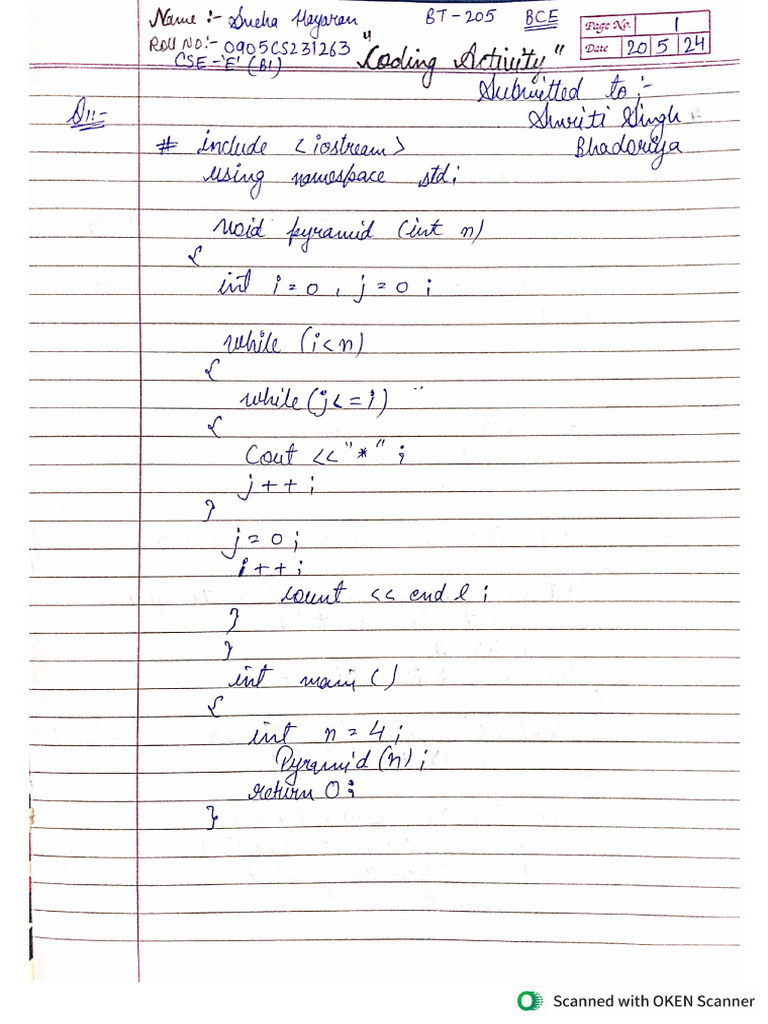 Name :- Sneha Hayaran BT-205 BCE
Page No. 1
Roll No:- 0905CS231263
Date 20 5 24
CSE-'E' (B1)
"Coding Activity"
Submitted to :-
Smriti Singh
Bhadoriya
Q1:-
# include <iostream>
using namespace std;
void pyramid (int n)
{
int i=0, j=0;
while (i<n)
{
while(j<=i)
{
Cout <<"*" ;
j++;
}
j=0;
i++;
count << endl;
}
}
int main()
{
int n=4;
Pyramid(n);
return 0;
}
Scanned with OKEN Scanner